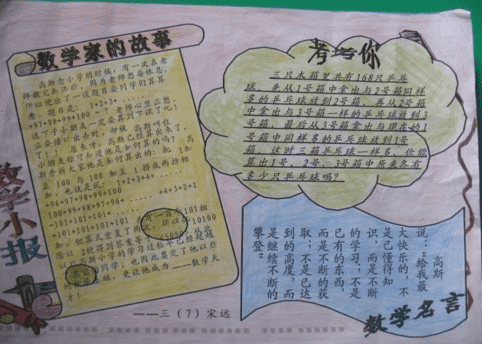 数学家的故事
高斯念小学的时候，有一次在老
师教完加法后，因为老师想要休息，
所以便出了一道题目要同学们算算
看，题目是： 1+2+3+ .....
+97+98+99+100 = ？ 老师心里正想，
这下子小朋友一定要算到下课了吧！
正要借口出去时，却被 高斯叫住
了！！原来呀，高斯已经算出来了，
小朋友你可知道他是如何算的吗？高
斯告诉大家他是如何算出的：把 1加
至 100 与 100 加至 1 排成两排相
加，也就是说：1+2+3+4+ .....
+96+97+98+99+100
100+99+98+97+96+ ..... +4+3+2+1
=101+101+101+ ..... +101+101+101
——三（7）宋远
考考你
三只木箱里共有168只乒乓
球，先从1号箱中拿出与2号箱同样
多的乒乓球放到2号箱，再从2号箱
中拿出与3号箱一样的乒乓球放到3
号箱，最后从3号箱拿出与现在的1
号箱中同样多的乒乓球放到1号
箱，这时三箱乒乓球一样多，你能
算出1号、2号、3号箱中原来各有
多少只乒乓球吗？
高斯
说：“给我最
大快乐的，不
是已懂得知
识，而是不断
的学习；不是
已有的东西，
而是不断的获
取；不是已达
到的高度，而
是继续不断的
攀登”
数学名言
数学小报